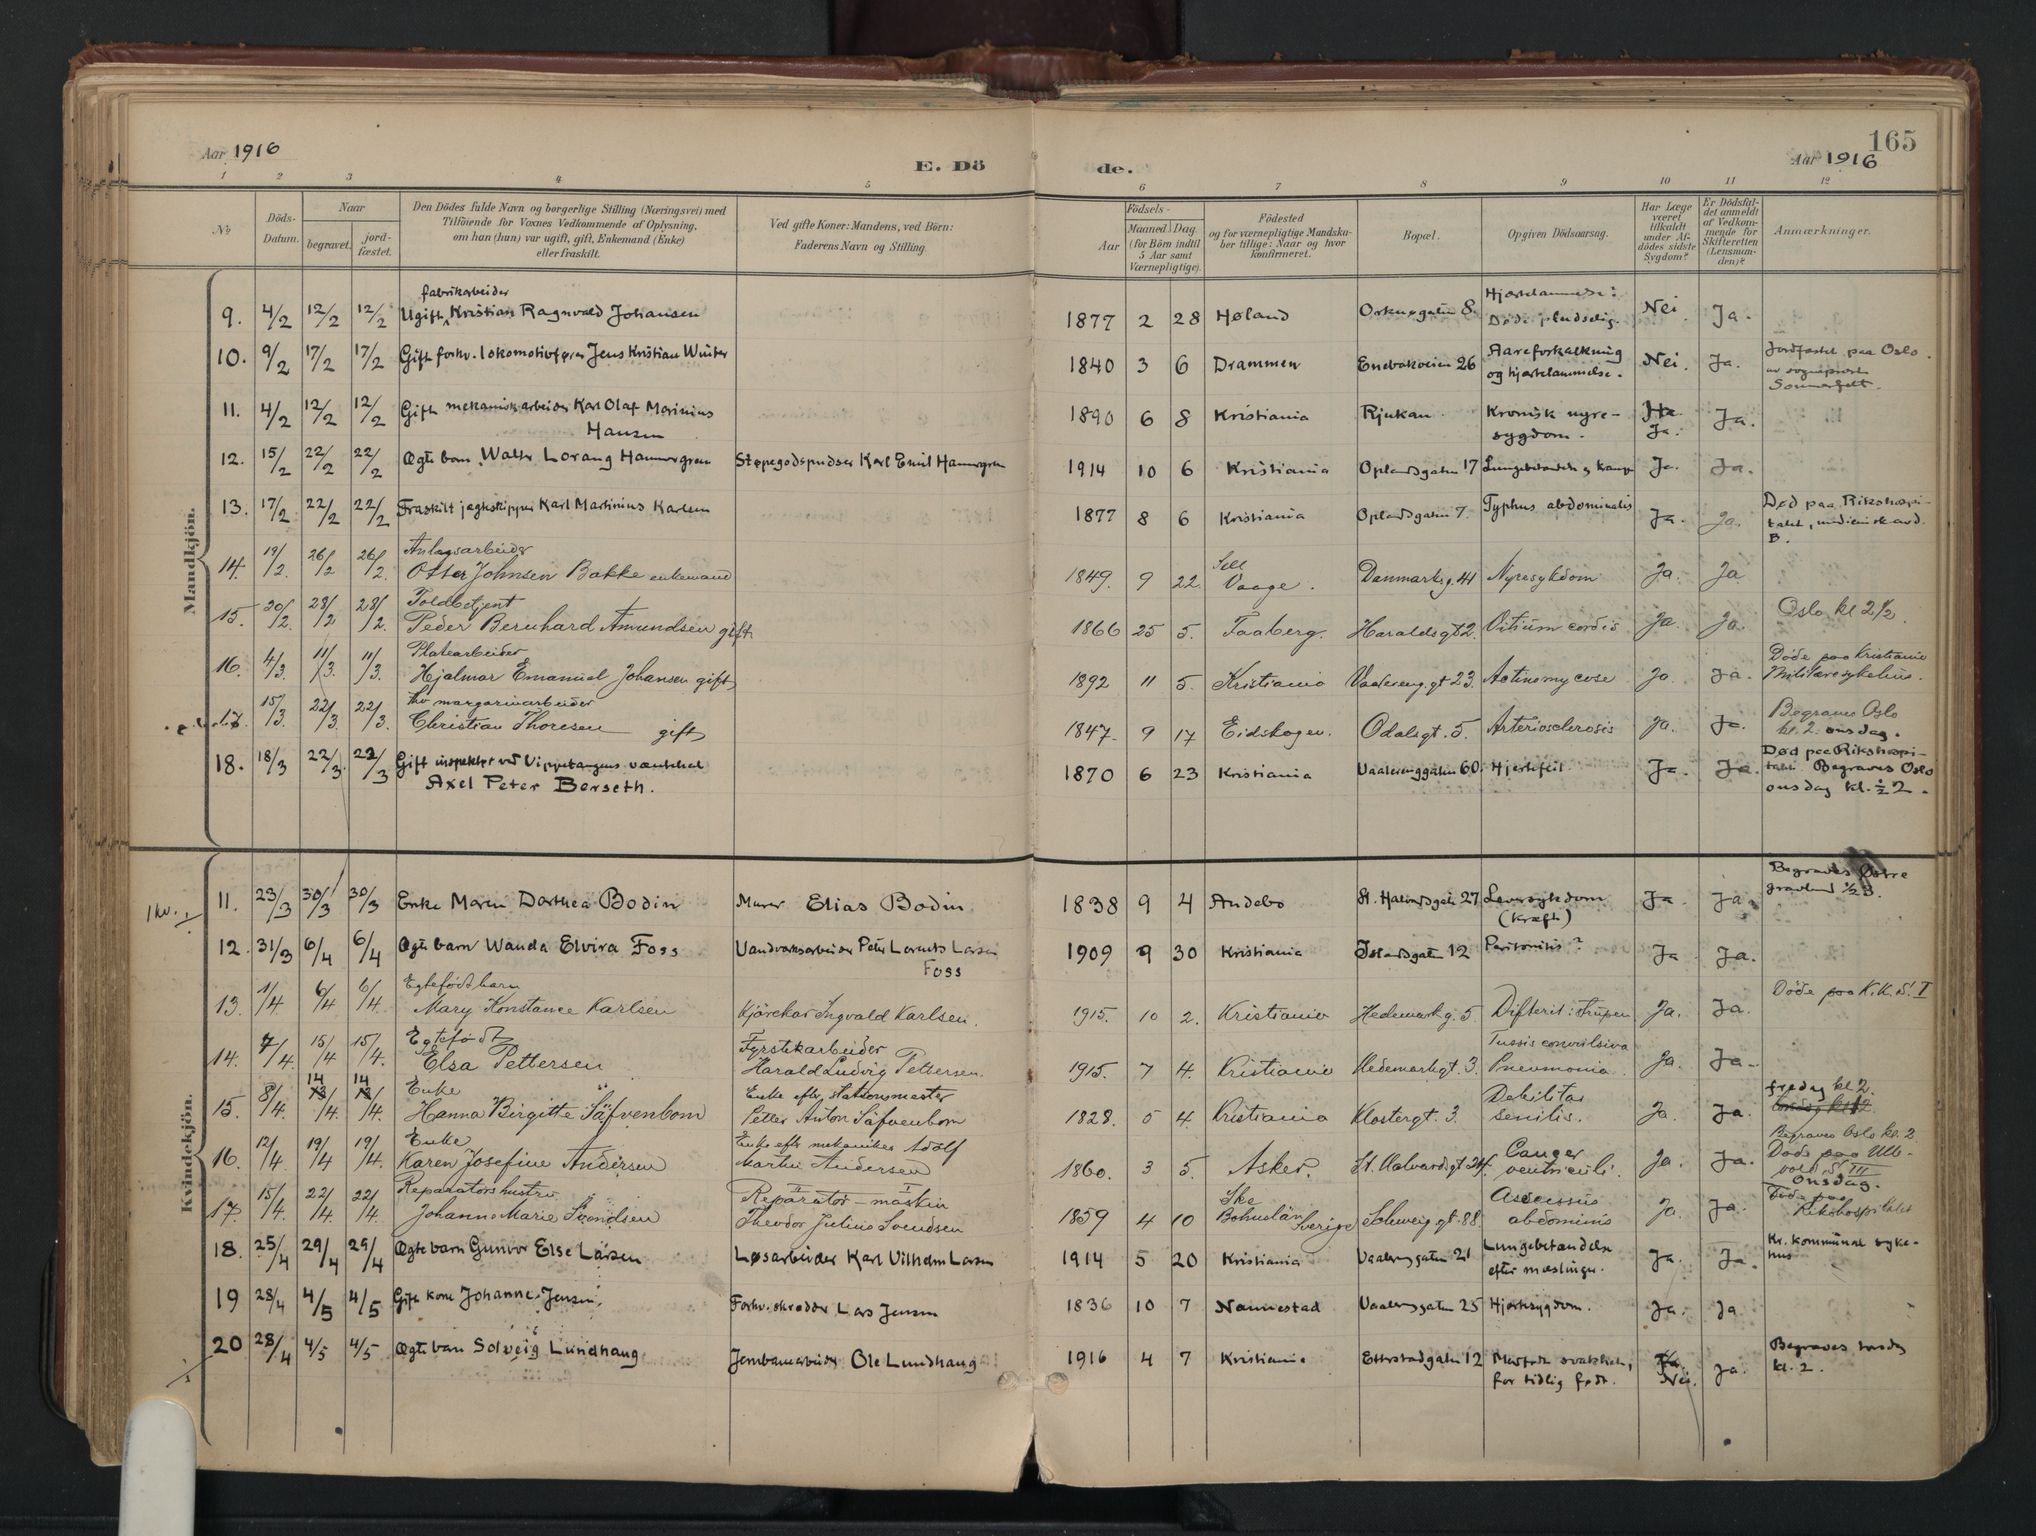 165
Aar 1916
E. Döde.
Aar 1916
1 2 3 4 5 6 7 8 9 10 11 12
No
Döds-Datum.
Naar
begravet.
jord-fæstet.
Den Dödes fulde Navn og borgerlige Stilling (Næringsvei) med
Tilföiende for Voxnes Vedkommende af Oplysning,
om han (hun) var ugift, gift, Enkemand (Enke)
eller fraskilt.
Ved gifte Koner: Mandens, ved Börn:
Faderens Navn og Stilling.
Födsels-
Aar
Maaned Dag
(for Börn indtil
5 Aar samt
Værnepligtige).
Födested
og for værnepligtige Mandsku-
ber tillige: Naar og hvor
konfirmeret.
Bopæl.
Opgiven Dödsaarsag.
Har Læge
været
tilkaldt
under Af-
dödes sidste
Sygdom?
Er Dödsfal-
det anmeldt
af Vedkom-
mende for
Skifteretten
(Lensman-
den)?
Anmærkninger.
Mandkjön.
fabrikarbeider
9. 4/2 12/2 12/2 Ugift Kristian Ragnvald Johansen 1877 2 28 Høland 8. Hjertelammelse: Døde pludselig. Nei Ja.
10. 9/2 17/2 17/2 Gift forhv. lokomotivfører Jens Kristian Winter 1840 3 6 Drammen Enebakveien 26 Aareforkalkning og hjertelammelse. Nei. Ja. Jordfæstet paa Oslo av sogneprest Sommerfelt.
11. 4/2 12/2 12/2 Gift mekanisk arbeider Karl Olaf Marinius
Hansen 1890 6 8 Kristiania Rjukan. Kronisk nyre-
sygdom. Ja. Ja.
12. 15/2 22/2 22/2 Ægte barn Walter Lorang Hammergren Støpegodspudser Karl Emil Hammergren 1914 10 6 Kristiania Oplandsgaten 17 Ja. Ja.
13. 17/2 22/2 22/2 Fraskilt jagtskipper Karl Martinius Karlsen 1877 8 6 Kristiania Oplandsgaten 7. Typhus abdominalis Ja. Ja. Død paa Rikshospi-
talet, medicinsk avd.
B.
Anlægsarbeider
14. 19/2. 26/2 26/2. Otter Johnsen Bakke enkemand 1849. 9 22. Sell Vaage. Danmarksg. 41 Nyresykdom Ja. Ja
Toldbetjent
15. 20/2. 28/2 28/2. Peder Bernhard Amundsen gift 1866 25 5. Faaberg. Haraldsgt 2. Vitium cordis Ja. Ja. Oslo kl 2 1/2.
Platearbeider
16. 4/3. 11/3. 11/3. Hjalmar Emanuel Johansen gift 1892 11 5. Kristiania Vaalereng. gt 23. Actinomycose Ja. Ja. Døde paa Kristiania
Militæresykehus.
fhv margarinarbeider
17. 15/3. 22/3. 22/3. Christian Thoresen gift 1847. 9 17 Eidskogen. Odalsgt. 5. Arteriosclerosis Ja. Ja. Begraves Oslo
kl. 2. onsdag.
18. 18/3 22/3. 22/3 Gift inspektør ved Vippetangens
Axel Peter Berseth. 1870 6 23 Kristiania Vaalerenggaten 60. Hjertefeil Ja. Ja. Død paa Rikshospi-
talet. Begraves Oslo
onsdag kl. 1/2 2.
Kvindekjön.
11. 23/3 30/3 30/3 Enke Maren Dorthea Bodin Murer Elias Bodin 1838 9 4 Andebo St. Halvardsgate 27 Leversykdom
(kræft) Ja Ja. Begraves Østre
gravlund 1/2 3.
12. 31/3 6/4 6/4 Ægte barn Wanda Elvira Foss Vandverksarbeider Peter Lorents Larsen
Foss 1909 9 30 Kristiania Islandsgaten 12 Peritonitis? Ja Ja.
Egtefödt barn
13. 1/4 6/4 6/4. Mary Konstance Karlsen Kjörekar Ingvald Karlsen. 1915. 10 2. Kristiania Hedemarkg. 5. Difterit i strupen Ja. Ja. Döde paa K.K.S. I
Egtefödt
14. 7/4. 15/4 15/4. Elsa Pettersen Fyrstikarbeider
Harald Ludvig Pettersen. 1915. 7 4. Kristiania Hedemarkgt. 3. Tussis convulsiva
Pneumonia. Ja. Ja.
Enke
15. 8/4. 14/4. 14/4. Hanna Birgitte Säfvenbom Enke efter Stationsmester
Petter Anton Säfvenbom 1828. 5 4. Kristiania Klostergt. 3. Debilitas
senilis. Ja. Ja. fredag kl 2.
Enke
16. 12/4. 19/4 19/4. Karen Josefine Andersen Enke efter mekaniker Adolf
Martin Andersen 1860. 3 5. Asker. St. Halvardsgt 24. Cancer
ventriculi. Ja. Ja. Begraves Oslo kl. 2.
Döde paa Ulle-
vold S. III
Onsdag.
Reparatörshustru
17. 15/4. 22/4 22/4. Johanne Marie Svendsen Reparatør - maskin
Theodor Julius Svendsen 1859 4 10 Bohuslän Sverige Schweigg gt. 88. Abscessus
abdominis Ja. Ja. Döde paa
Rikshospitalet
18. 25/4 29/4 29/4 Ægte barn Gunvor Else Larsen Løsarbeider Karl Vilhelm Larsen 1914 5 20 Kristiania 21 Lungebetændelse
efter meslinger. Ja. Ja. Kr. kommunal syke-
hus
19 28/4 4/5 4/5 Gift kone Johanne Jensen Forhv. skredder Lars Jensen 1836 10 7 Nannestad 25 Hjertesygdom. Ja. Ja
20 28/4 4/5 4/5 Ægte barn Solveig Lundhaug Jernbanearbeider Ole Lundhaug 1916 4 7 Kristiania Etterstadgaten 12 Medfødt svakhet,
for tidlig født. Nei. Ja. Begraves
kl. 2.